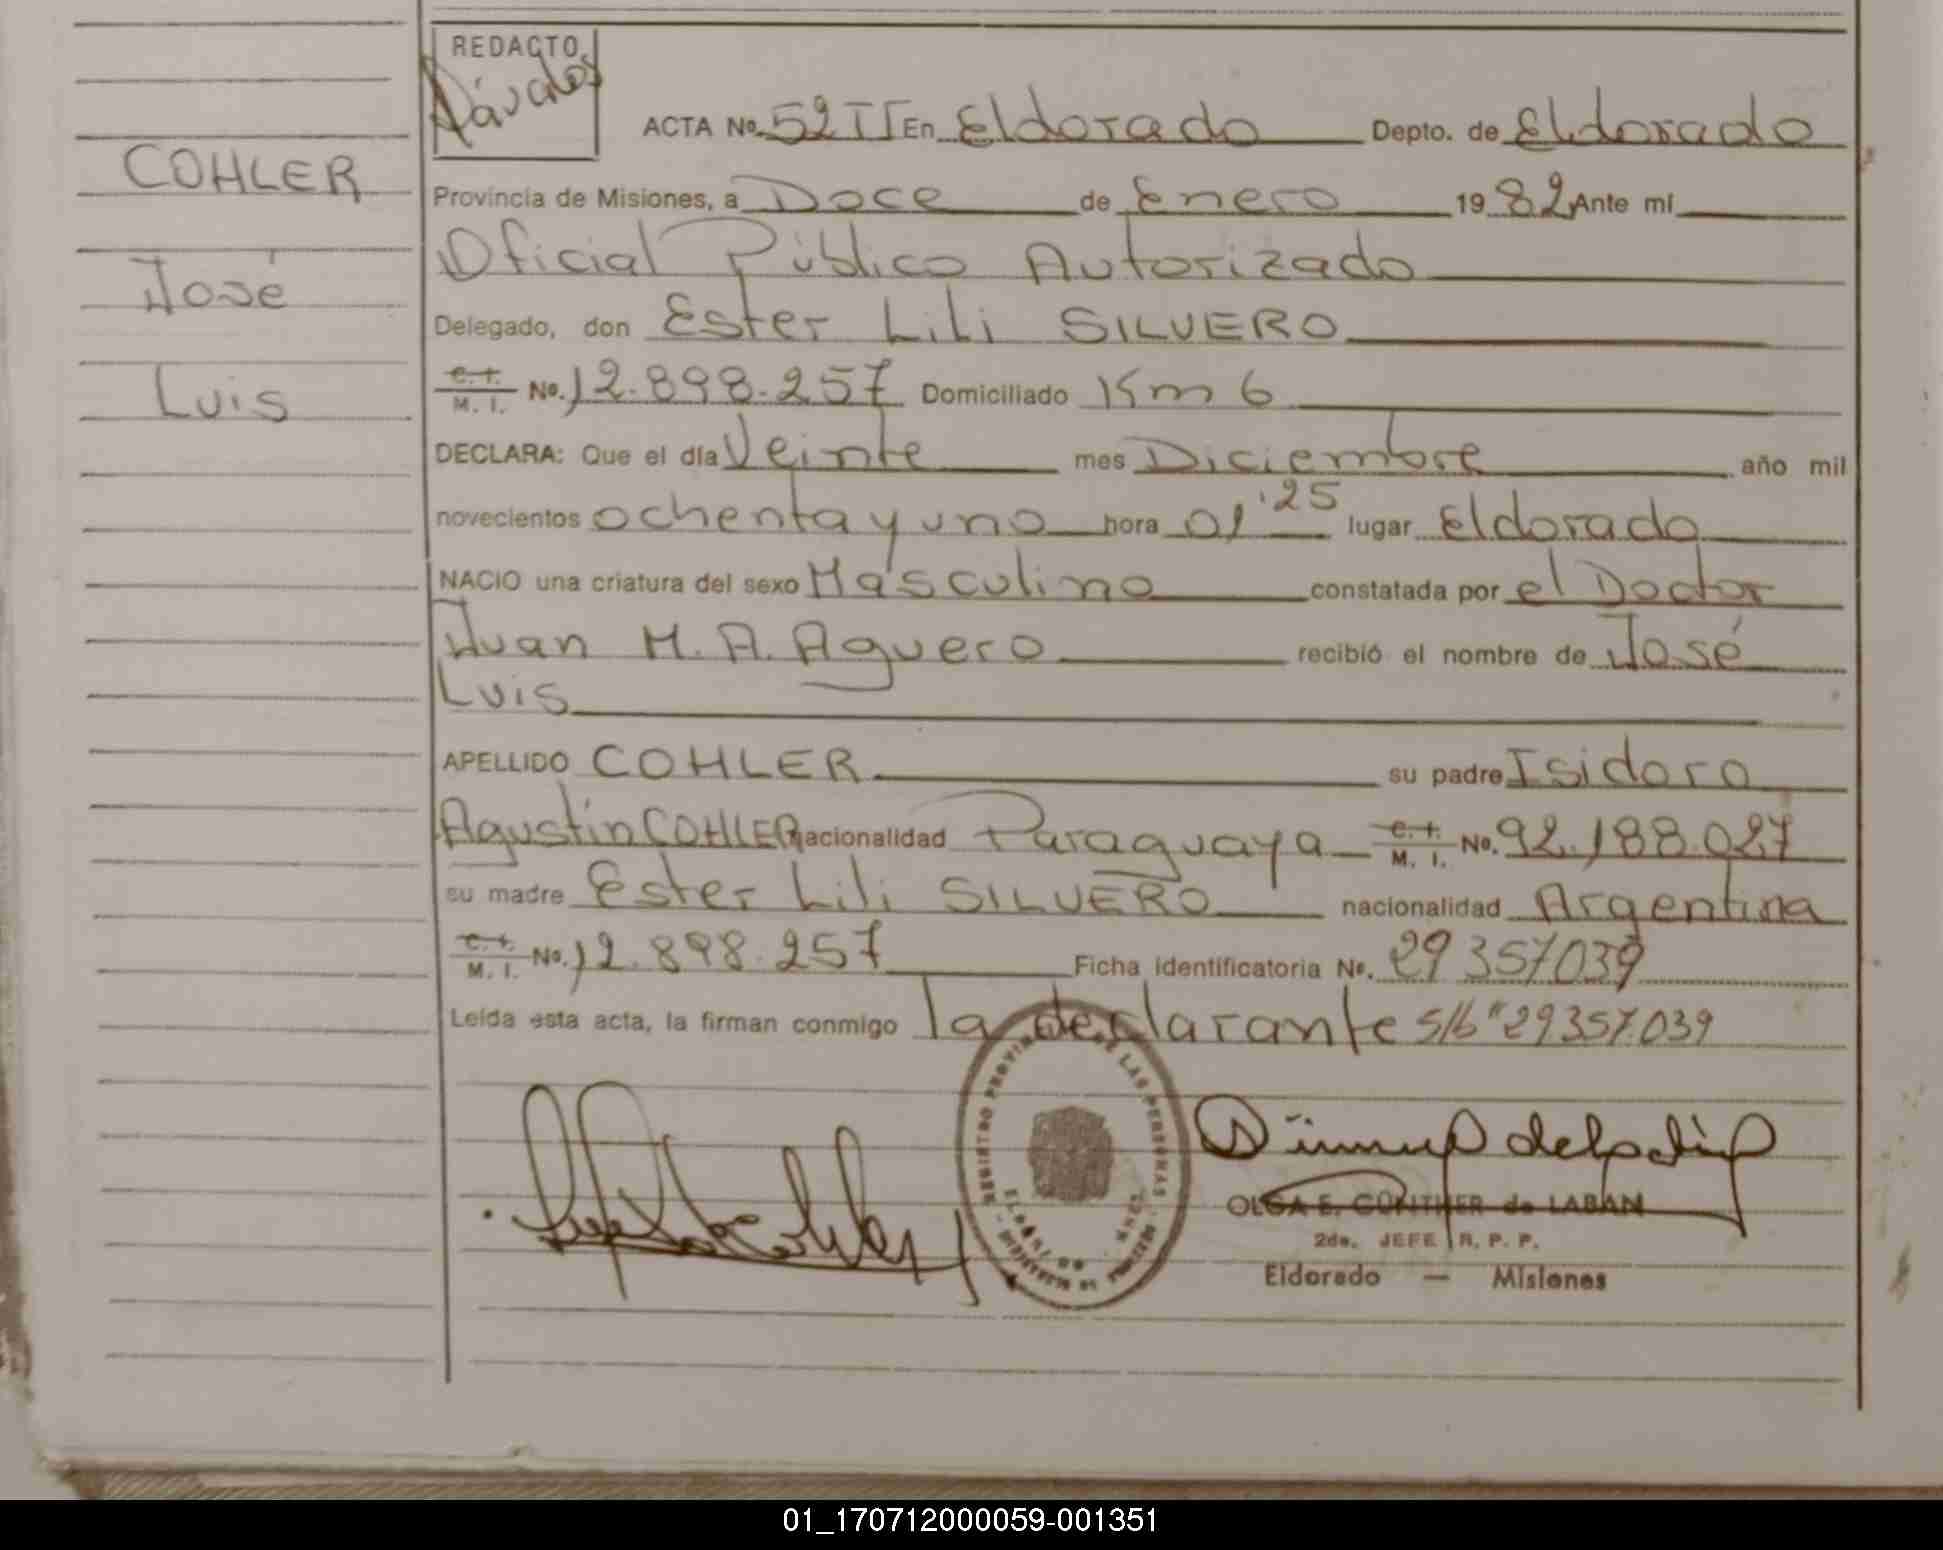 REDACTO
Dávalos
ACTA No. 52 TI En Eldorado Depto. de Eldorado
COHLER
Provincia de Misiones, a Doce de Enero 1982 Ante mí
Oficial Público Autorizado
José
Delegado, don Ester Lili SILVERO
Luis
C. I. M. I. No. 12.898.257 Domiciliado Km 6
DECLARA: Que el día Veinte mes Diciembre año mil
novecientos ochenta y uno hora 01'25 lugar Eldorado
NACIO una criatura del sexo Masculino constatada por el Doctor
Juan M. A. Aguero recibió el nombre de José
Luis
APELLIDO COHLER su padre Isidoro
Agustín COHLER nacionalidad Paraguaya C. I. M. I. No. 92.188.027
su madre Ester Lili SILVERO nacionalidad Argentina
C. I. M. I. No. 12.898.257 Ficha identificatoria No. 29357039
Leída esta acta, la firman conmigo la declarante s/b 29357.039
OLGA E. GÜNTHER de LABAN
2da. JEFE R. P. P.
Eldorado — Misiones
01_170712000059-001351